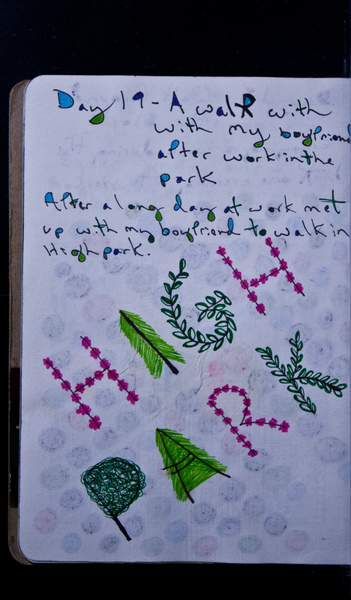 Day 19 - A walk with
with my boyfriend
after work in the
park
After a long day at work met
up with my boyfriend to walk in
High park.
HIGH
PARK